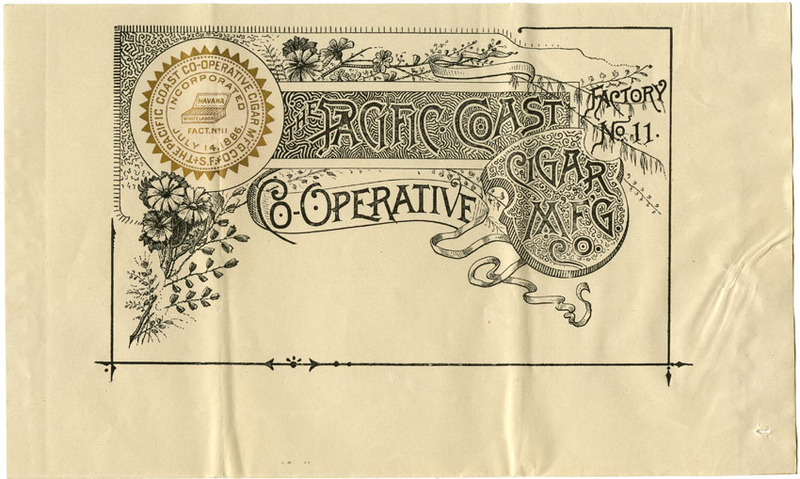 THE PACIFIC COAST CO-OPERATIVE CIGAR MFG CO.
INCORPORATED
HAVANA
FACT. No 11
JULY 14, 1886.
S.F.
THE PACIFIC COAST
FACTORY
No. 11.
CO-OPERATIVE
CIGAR
MFG.
CO.